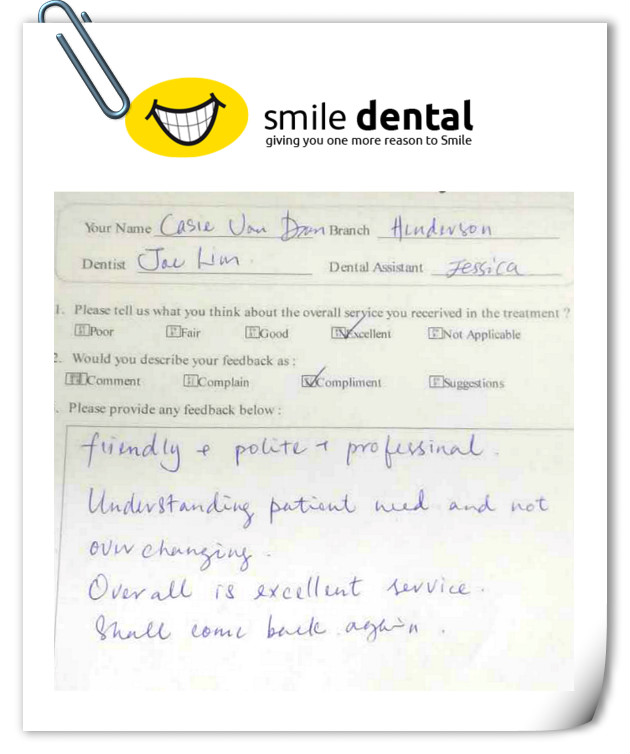 smile dental
giving you one more reason to Smile
Your Name Casie Van Dam Branch Henderson
Dentist Jae Lim. Dental Assistant Jessica
1. Please tell us what you think about the overall service you recerived in the treatment ?
Poor Fair Good Excellent Not Applicable
2. Would you describe your feedback as :
Comment Complain Compliment Suggestions
. Please provide any feedback below :
friendly + polite + professinal.
Understanding patient need and not
over changing.
Over all is excellent service.
Shall come back again.